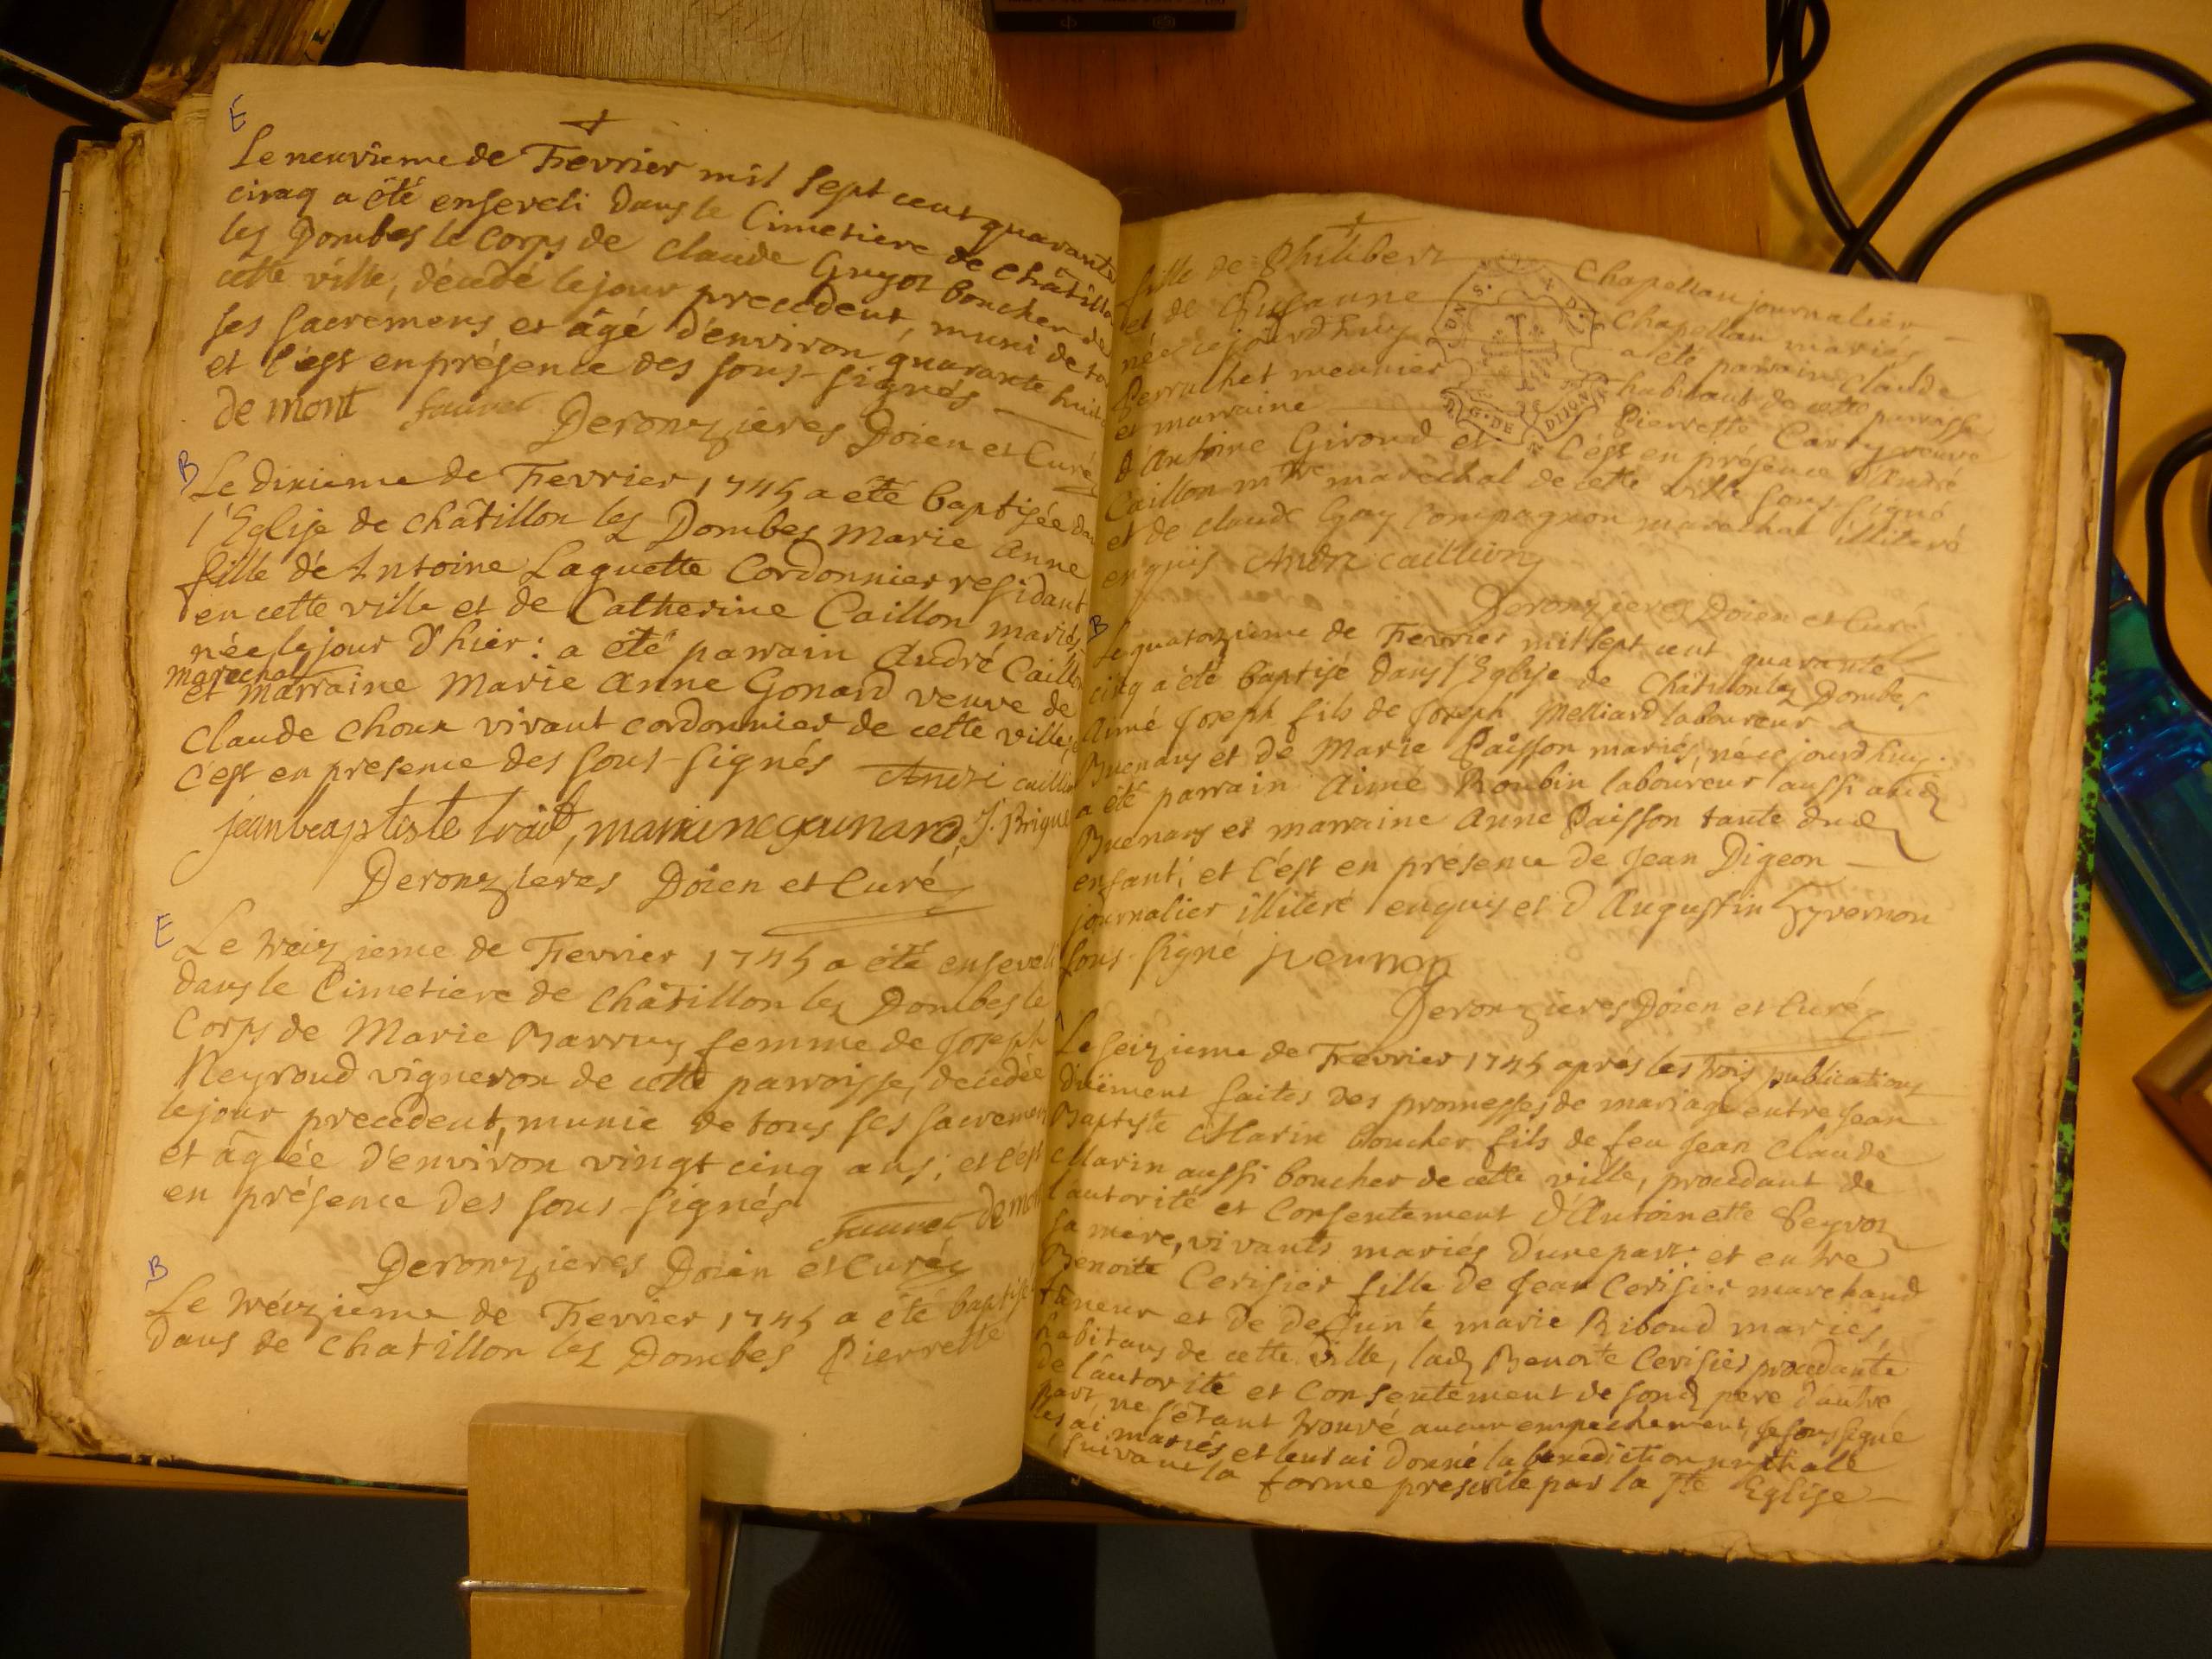 E
Le neuvieme de Fevrier mil sept cent quarante
cinq a été enseveli dans le Cimetiere de châtillon
les Dombes le corps de claude Guyot boucher de
cette ville, décédé le jour precedent, muni de
ses sacremens et âgé d'environ quarante huit
et c'est en présence des sous-signés
de mont fauvet
Deronzieres Doien et Curé
B
Le dixieme de Fevrier 1745 a été baptisée dans
l'Eglise de châtillon les Dombes Marie Anne
fille de Antoine Laguette Cordonnier residant
en cette ville et de Catherine Caillon mariés
née le jour d'hier : a été parrain André Caillon
marechal
et marraine Marie Anne Gonard veuve de
Claude Choux vivant cordonnier de cette ville,
c'est en presence des sous-signés Andri caillion
jeanbeaptiste trait, J. Brigue
Deronzieres Doien et Curé
E
Le treizieme de Fevrier 1745 a été enseveli
dans le Cimetiere de châtillon les Dombes le
Corps de Marie Barruy femme de Joseph
Neyroud vigneron de cette parroisse, décédée
le jour precedent, munie de tous ses sacremens
et âgée d'environ vingt cinq ans; et c'est
en présence des sous-signés fauvet de mont
Deronzieres Doien et Curé
B
Le tréizieme de Fevrier 1745 a été baptisée
dans de Chatillon les Dombes Pierrette
fille de Philibert Chapellan journalier
et de Susanne Chapellan mariés
née cejourd'huy a été parrain Claude
Perruchet meunier habitant de cette parroisse
et marraine Pierrette Carry veuve
d'Antoine Giroud et c'est en présence d'André
Caillon mtre maréchal de cette ville sous-signé
et de claude Gay compagnon marechal illiteré
enquis Andri caillion
Deronzieres Doien et Curé
B
Le quatorzieme de Fevrier mil sept cent quarante
cinq a été baptisé dans l'Eglise de Châtillon les Dombes
Aimé Joseph fils de Joseph Melliard laboureur a
Buenans et de Marie Paisson mariés, né ce jourd'huy.
a été parrain Aimé Roubin laboureur aussi aud
Buenans et marraine Anne Paisson tante dud
enfant; et c'est en présence de Jean Digeon
journalier illiteré enquis et d'Augustin Yvernon
sous-signé ivernon
Deronzieres Doien et Curé
Le seizieme de Fevrier 1745 aprés les trois publications
duëment faites des promesses de mariage entre Jean
Baptiste Marin boucher fils de feu Jean Claude
Marin aussi boucher de cette ville, procedant de
l'autorité et Consentement d'Antoinette Peyron
sa mere, vivants mariés d'une part: et entre
Benoite Cerisier fille de Jean Cerisier marchand
taneur et de defunte marie Riboud mariés,
habitans de cette ville, lad Benoite Cerisier procedante
de l'autorité et Consentement de sond pere d'autre
part, ne s'étant trouvé aucun empechement, Je soussigné
les ai mariés et leur ai donné la benediction nuptiale
suivant la forme prescrite par la Ste Eglise